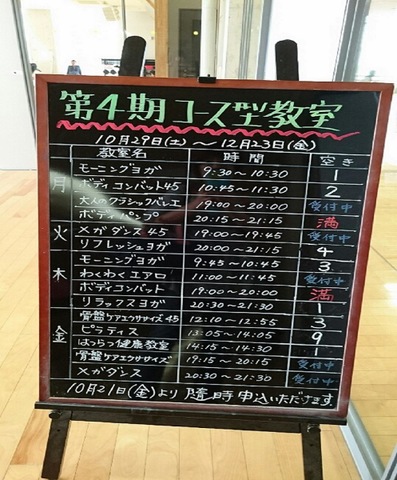 第4期コース型教室
10月29日(土)～12月23日(金)
教室名 時間 空き
月 モーニングヨガ 9:30～10:30 1
ボディコンバット45 10:45～11:30 2
大人のクラシックバレエ 19:00～20:00 受付中
ボディパンプ 20:15～21:15 満
火 メガダンス45 19:00～19:45 受付中
リフレッシュヨガ 20:00～21:15 4
木 モーニングヨガ 9:45～10:45 3
わくわくエアロ 11:00～11:45 受付中
ボディコンバット 19:00～20:00 満
リラックスヨガ 20:30～21:30 1
金 骨盤ケアエクササイズ45 12:10～12:55 3
ピラティス 13:05～14:05 9
はつらつ健康教室 14:15～14:30 1
骨盤ケアエクササイズ 19:15～20:15 受付中
メガダンス 20:30～21:30 受付中
10月21日(金)より随時申込いただけます